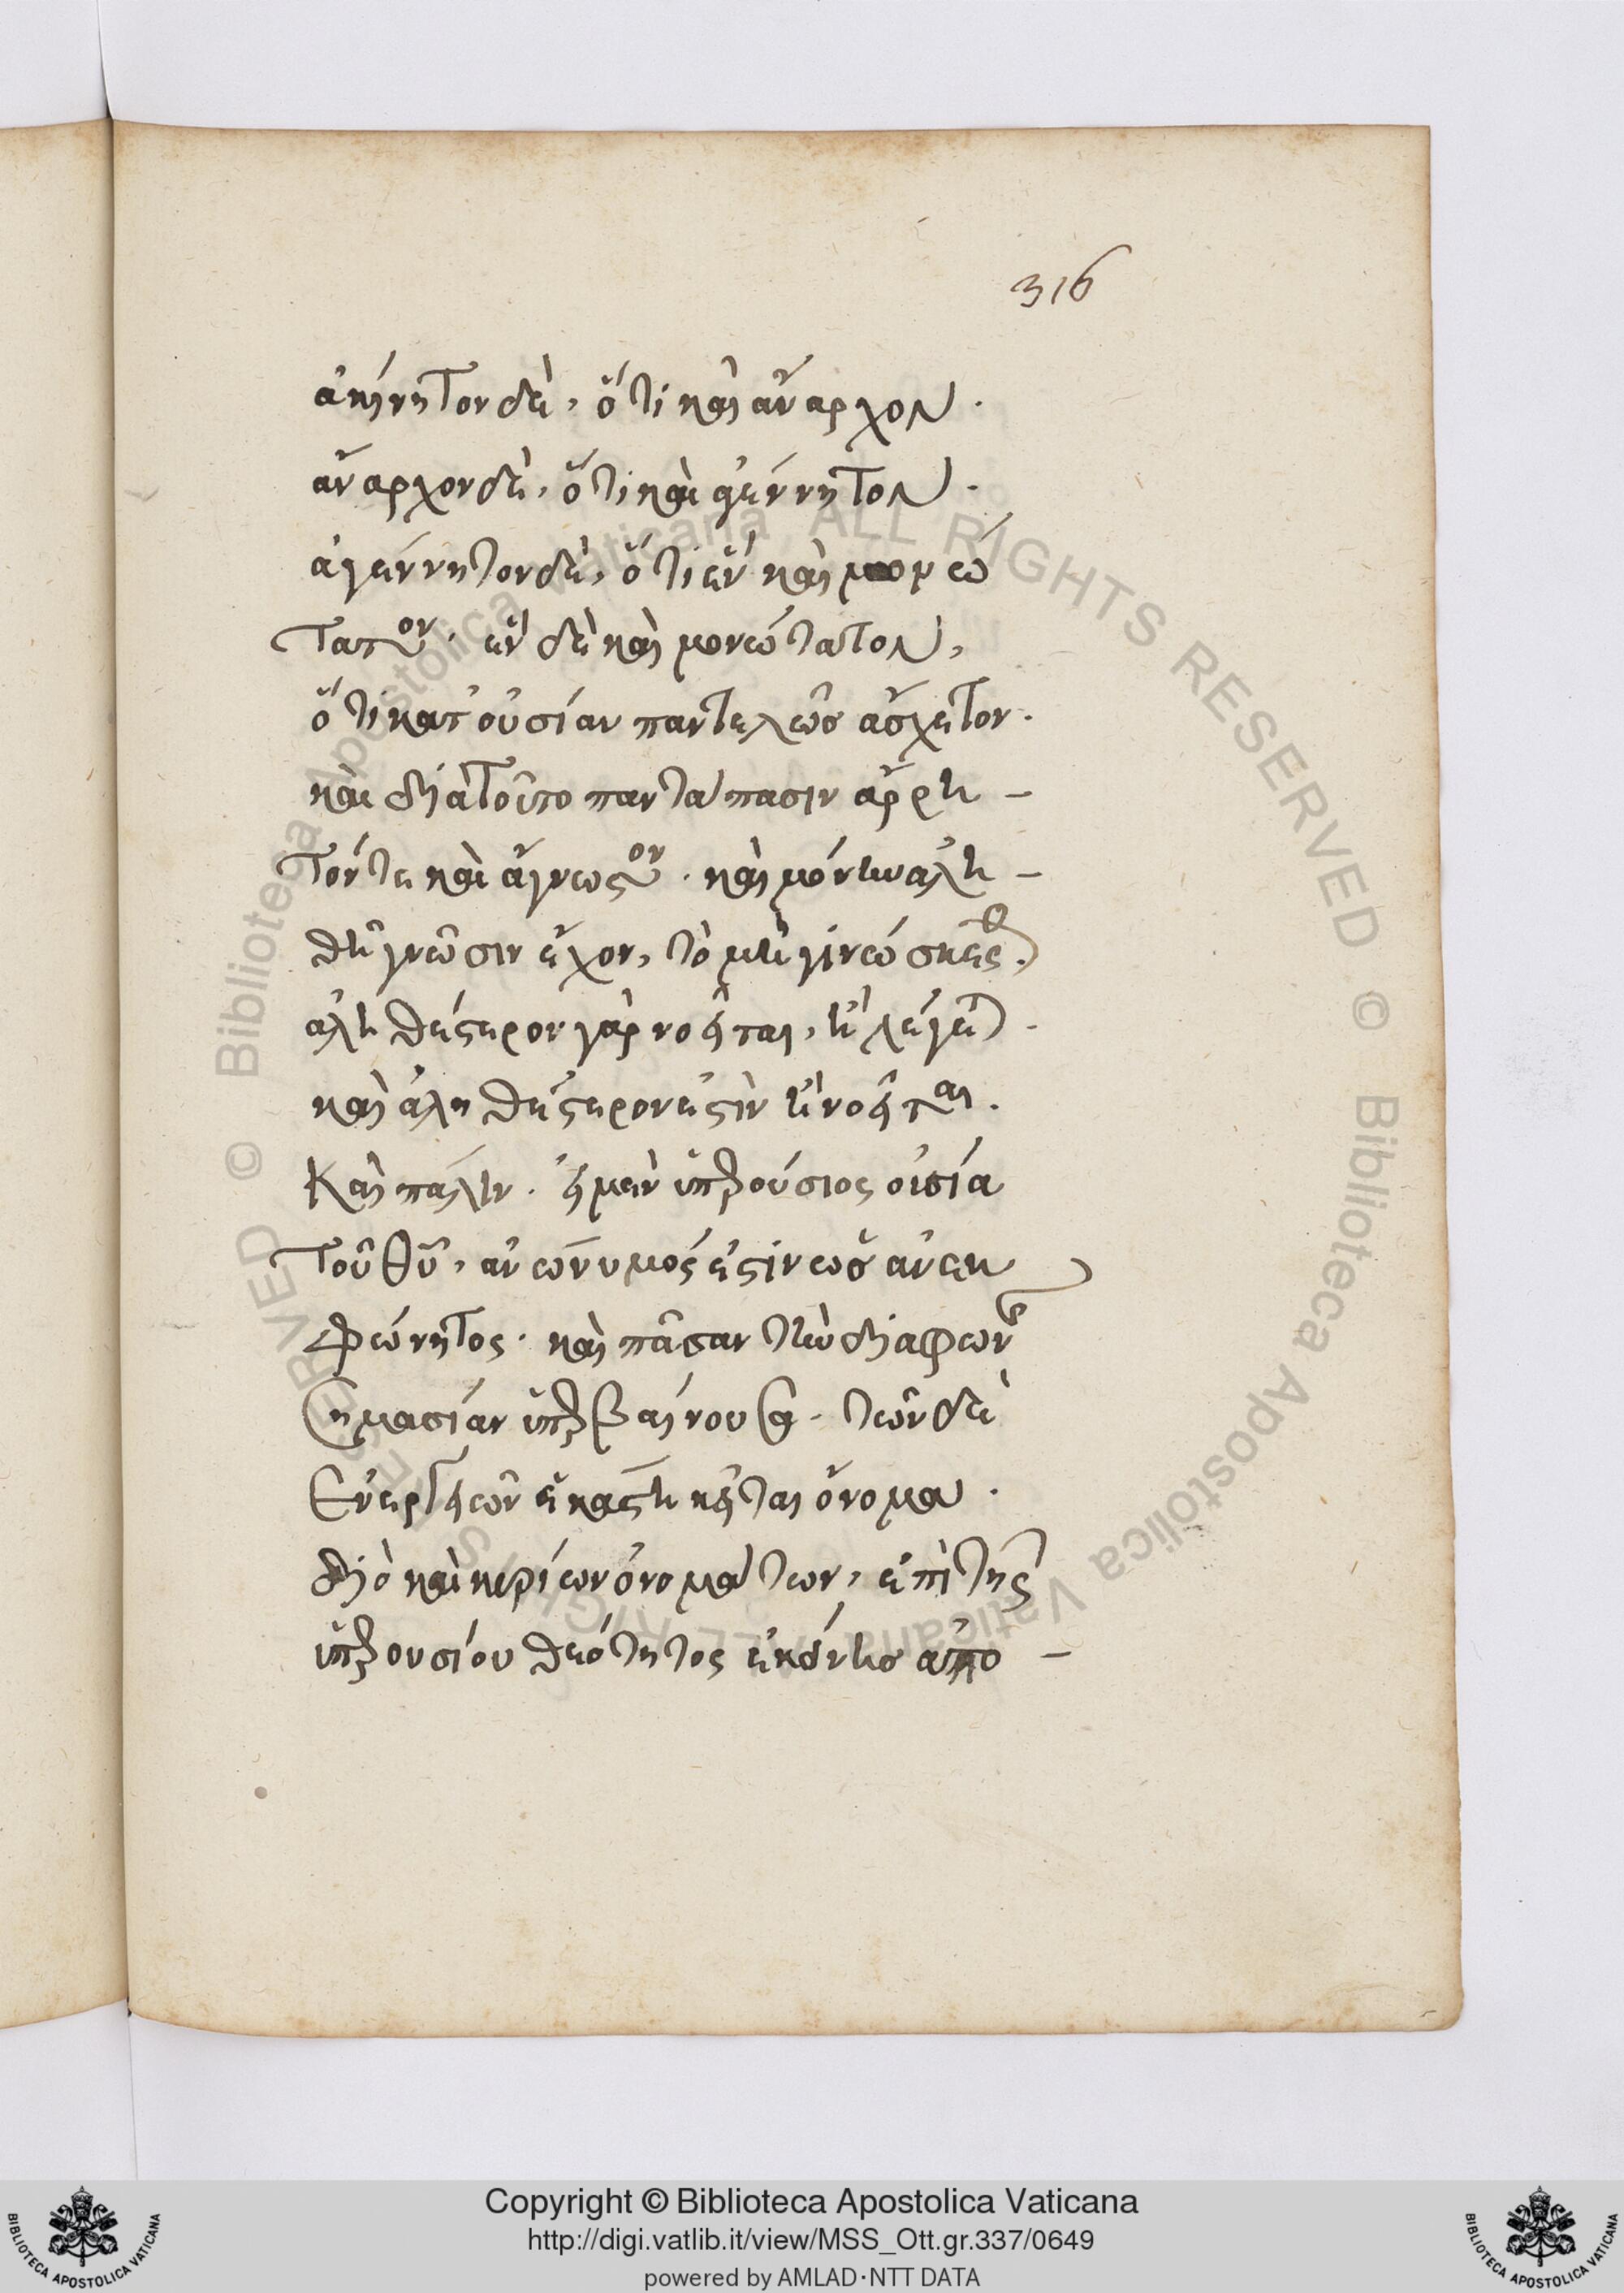 316
ἀκίνητον δὲ, ὅτι καὶ ἄναρχον.
ἄναρχον δὲ, ὅτι καὶ ἀγέννητον.
ἀγέννητον δὲ, ὅτι ἓν καὶ μονώ
τατον. ἓν δὲ καὶ μονώτατον,
ὅτι κατ' οὐσίαν παντελῶς ἄσχετον.
καὶ διὰ τοῦτο παντάπασιν ἄρρη -
τόν τε καὶ ἄγνωστον. καὶ μόνην ἀλη -
θῆ γνῶσιν ἔχον, τὸ μὴ γινώσκεσθαι.
ἀληθέστερον γὰρ νοεῖται, ἢ λέγεται.
καὶ ἀληθέστερον ἐστὶν ἢ νοεῖται.
Καὶ πάλιν. ἡ μὲν ὑπερούσιος οὐσία
τοῦ θυ, ἀνώνυμός ἐστιν ὡς ἀνεκ
φώνητος. καὶ πᾶσαν τὴν διὰ φωνῶν
σημασίαν ὑπερβαίνουσα. τῶν δὲ
ἐνεργειῶν ἑκάστη κεῖται ὄνομα.
διὸ καὶ κυρίων ὀνομάτων, ἐπὶ τῆς
ὑπερουσίου θεότητος ἐκδόντες ἀπο -
Copyright © Biblioteca Apostolica Vaticana
http://digi.vatlib.it/view/MSS_Ott.gr.337/0649
powered by AMLAD·NTT DATA
BIBLIOTECA APOSTOLICA VATICANA
BIBLIOTECA APOSTOLICA VATICANA
© Biblioteca Apostolica Vaticana ALL RIGHTS RESERVED
© Biblioteca Apostolica Vaticana ALL RIGHTS RESERVED